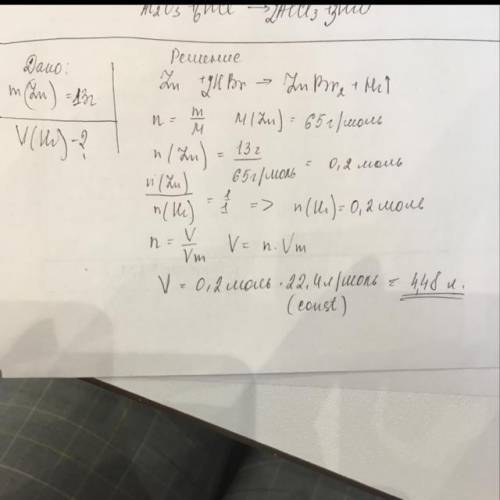 Al2O3 + 6HCl → 2AlCl3 + 3H2O
Дано:
m(Zn) = 13г
V(H2) - ?
Решение
Zn + 2HBr → ZnBr2 + H2↑
n = m/M M(Zn) = 65г/моль
n(Zn) = 13г/65г/моль = 0,2 моль
n(Zn)/n(H2) = 1/1 => n(H2) = 0,2 моль
n = V/Vm V = n·Vm
V = 0,2 моль · 22,4л/моль = 4,48 л.
(const)